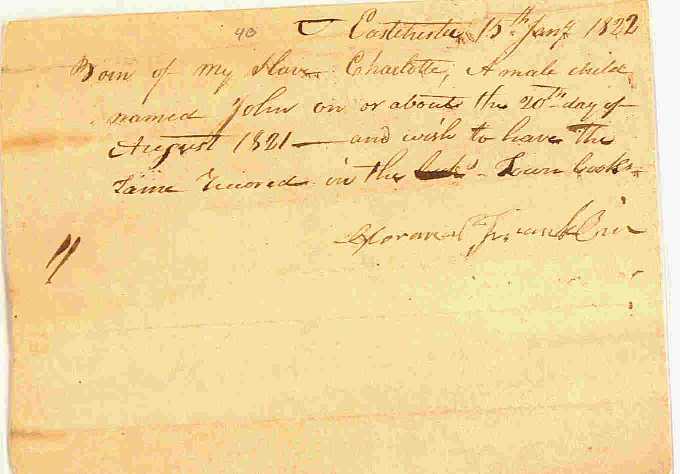 40
Eastchester 15th Jany 1822
Born of my Slave Charlotte, A male child
named John on or about the 20th day of
August 1821 — and wish to have the
Same Recored in the Town books
Franklin